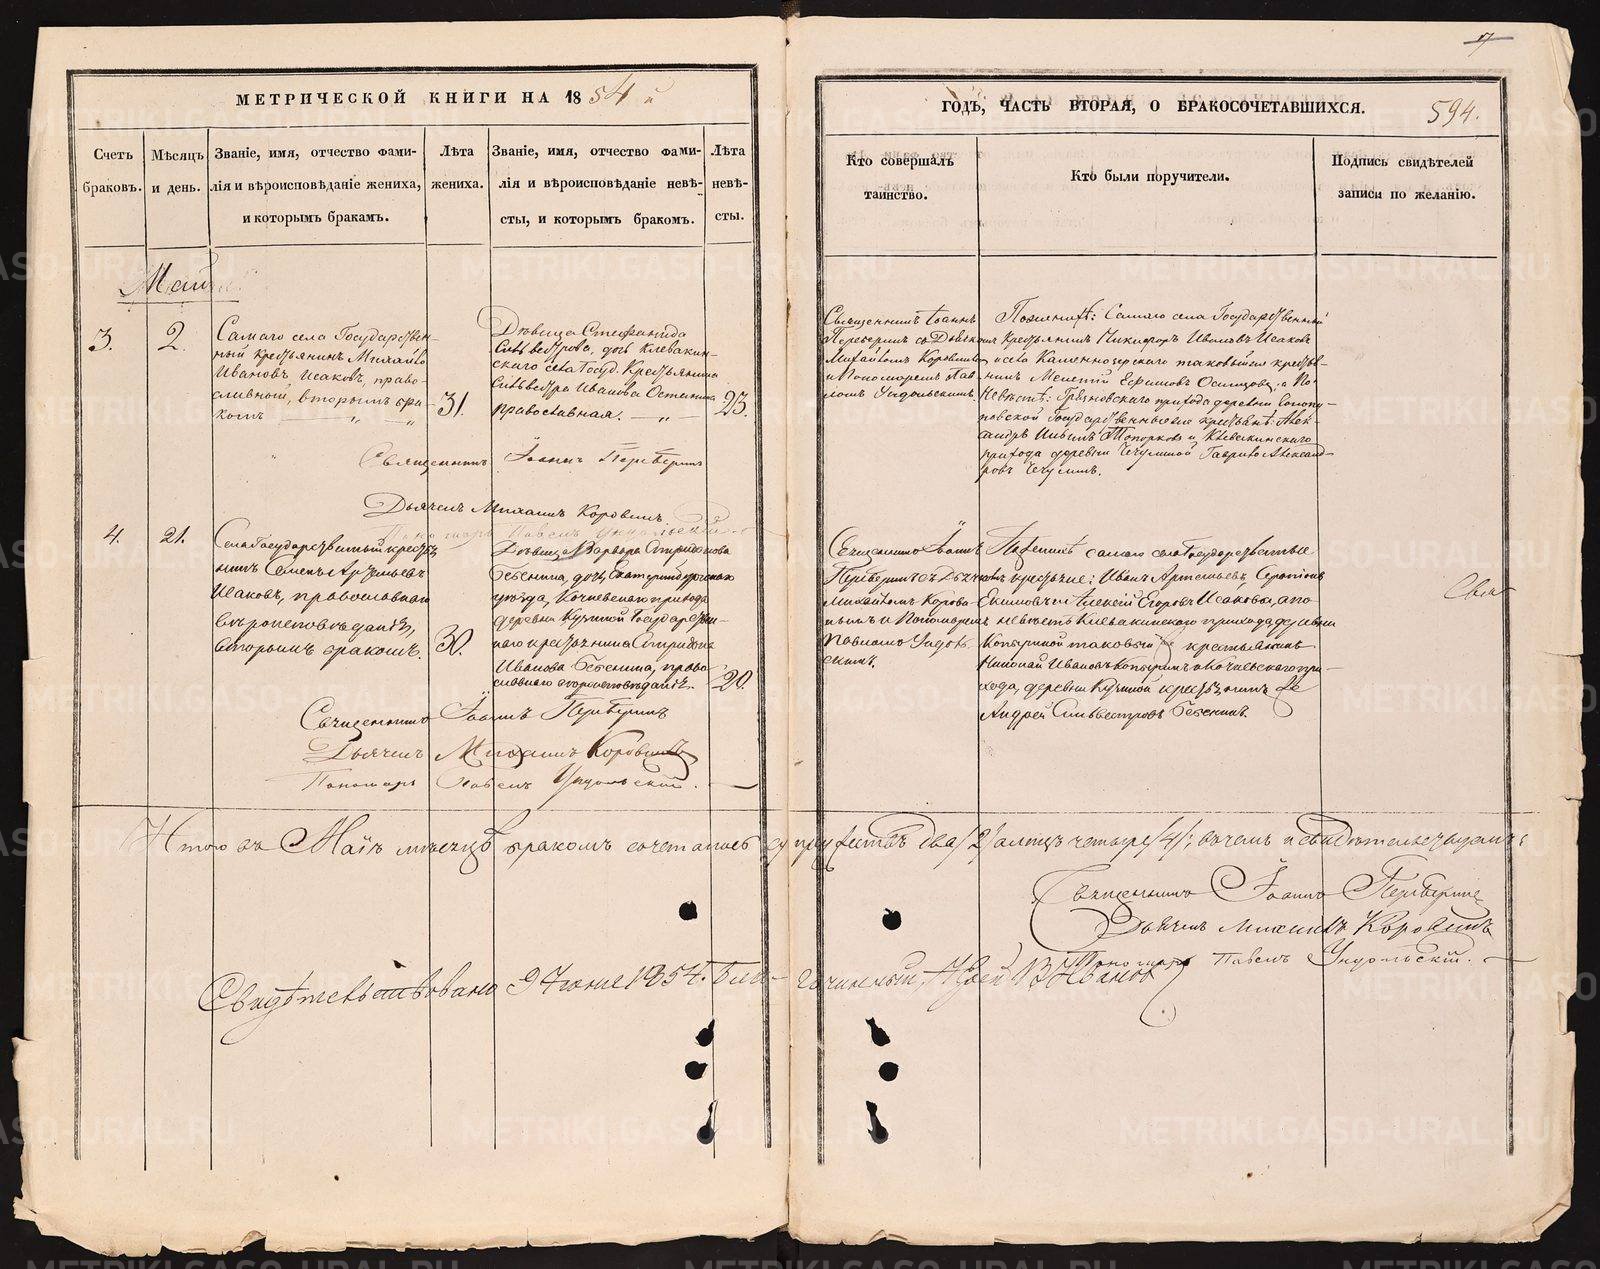 МЕТРИЧЕСКОЙ КНИГИ НА 1854й
ГОДЪ, ЧАСТЬ ВТОРАЯ, О БРАКОСОЧЕТАВШИХСЯ.
594.
Счетъ браковъ.
Мѣсяцъ и день.
Званіе, имя, отчество фами-
лія и вѣроисповѣданіе жениха,
и которымъ бракамъ.
Лѣта
жениха.
Званіе, имя, отчество фами-
лія и вѣроисповѣданіе невѣ-
сты, и которымъ бракомъ.
Лѣта
невѣ-
сты.
Кто совершалъ
таинство.
Кто были поручители.
Подпись свидѣтелей
записи по желанію.
Май
3.
2.
Самаго села Государствен-
ный крестьянинъ Михайло
Ивановъ Исаковъ, право-
славный, вторымъ бра-
комъ
31.
Дѣвица Стефанида
Сильвестрова, дочь Клевакин-
скаго села Госуд. Крестьянина
Сильвестра Иванова Остани��а
православная.
23.
Священникъ Іоаннъ
Переберинъ съ Дьячкомъ
Михайломъ Коровинымъ
и Пономаремъ Пав-
ломъ Ундольскимъ.
По женихѣ: Самаго села Государственный
Крестьянинъ Никифоръ Ивановъ Исаковъ
и села Каменноозерскаго таковый же кресть-
нинъ Мелетій Ефимовъ Осинцовъ; а по
Невѣстѣ: Грязновскаго прихода деревни
Государственные же крестьяне: Алек-
сандръ Ильинъ Топорковъ и Клевакинскаго
прихода деревни Чечулиной Гаврило Александ-
ровъ Чечулинъ.
Священникъ Іоаннъ Переберинъ
Дьячекъ Михаилъ Коровинъ.
Пономарь Павелъ Ундольскій
4.
21.
Села Государственный крестья-
нинъ Семенъ Артемьевъ
Исаковъ, православнаго
вѣроисповѣданія,
вторымъ бракомъ.
30.
Дѣвица Варвара Спиридонова
Бебенина, дочь Екатеринбургскаго
уѣзда, Кочневскаго прихода
деревни Кузиной Государствен-
наго крестьянина Спиридона
Иванова Бебенина, право-
славнаго вѣроисповѣданія.
20.
Священникъ Іоаннъ
Переберинъ съ Дьячкомъ
Михайломъ Корови-
нымъ и Пономаремъ
Павломъ Ундоль-
скимъ.
По женихѣ самаго села Государственные
крестьяне: Иванъ Артемьевъ,
Екимовъ и Алексій Егоровъ Исаковы, а по
невѣстѣ Клевакинскаго прихода деревни
таковый же крестьянинъ
Николай Ивановъ и Кочневскаго при-
хода, деревни Кузиной крестьянинъ же
Андрей Сильвестровъ Бебенинъ.
Священникъ Іоаннъ Переберинъ
Дьячекъ Михаилъ Коровинъ
Пономарь Павелъ Ундольскій.
Итого въ Маѣ мѣсяцѣ бракомъ сочеталось супружествъ два /2/ а лицъ четыре /4/; въ чемъ и свидѣтельствуемъ:
Священникъ Іоаннъ Переберинъ
Дьячекъ Михаилъ Коровинъ
Пономарь Павелъ Ундольскій.
Свидѣтельствовано 9 Іюня 1854. Благочинный, Іерей В. Ивановъ
METRIKI.GASO-URAL.RU